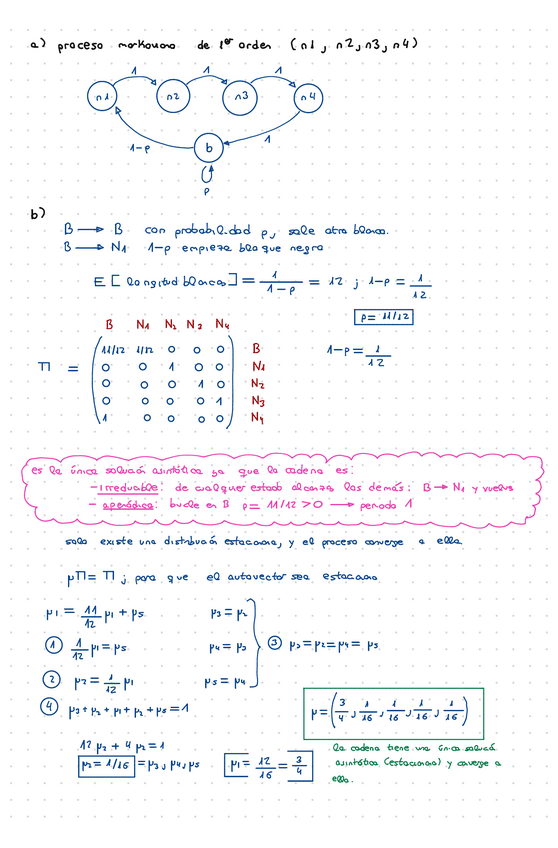 a) proceso markoviano de 1er orden (n1, n2, n3, n4)
1 1 1
n1 n2 n3 n4
1-p b 1
p
b)
B → B con probabilidad p, sale otro blanco.
B → N1 1-p empieza bloque negro
E [longitud blancos] = 1/(1-p) = 12 ; 1-p = 1/12
p = 11/12
B N1 N2 N3 N4
11/12 1/12 0 0 0 B
1-p = 1/12
0 0 1 0 0 N1
Π =
0 0 0 1 0 N2
0 0 0 0 1 N3
1 0 0 0 0 N4
es la única solución asintótica ya que la cadena es:
- irreducible: de cualquier estado alcanza los demás: B → N1 y vuelve
- aperiódica: bucle en B p = 11/12 > 0 → periodo 1
solo existe una distribución estacionaria, y el proceso converge a ella
μΠ = Π ; para que el autovector sea estacionario
μ1 = 11/12 μ1 + μ5 μ3 = μ2
① 1/12 μ1 = μ5 μ4 = μ3 ③ μ3 = μ2 = μ4 = μ5
② μ2 = 1/12 μ1 μ5 = μ4
④ μ3 + μ2 + μ1 + μ4 + μ5 = 1
μ = (3/4, 1/16, 1/16, 1/16, 1/16)
12 μ2 + 4 μ2 = 1
μ2 = 1/16 = μ3, μ4, μ5 μ1 = 12/16 = 3/4
la cadena tiene una única solución
asintótica (estacionaria) y converge a
ella.